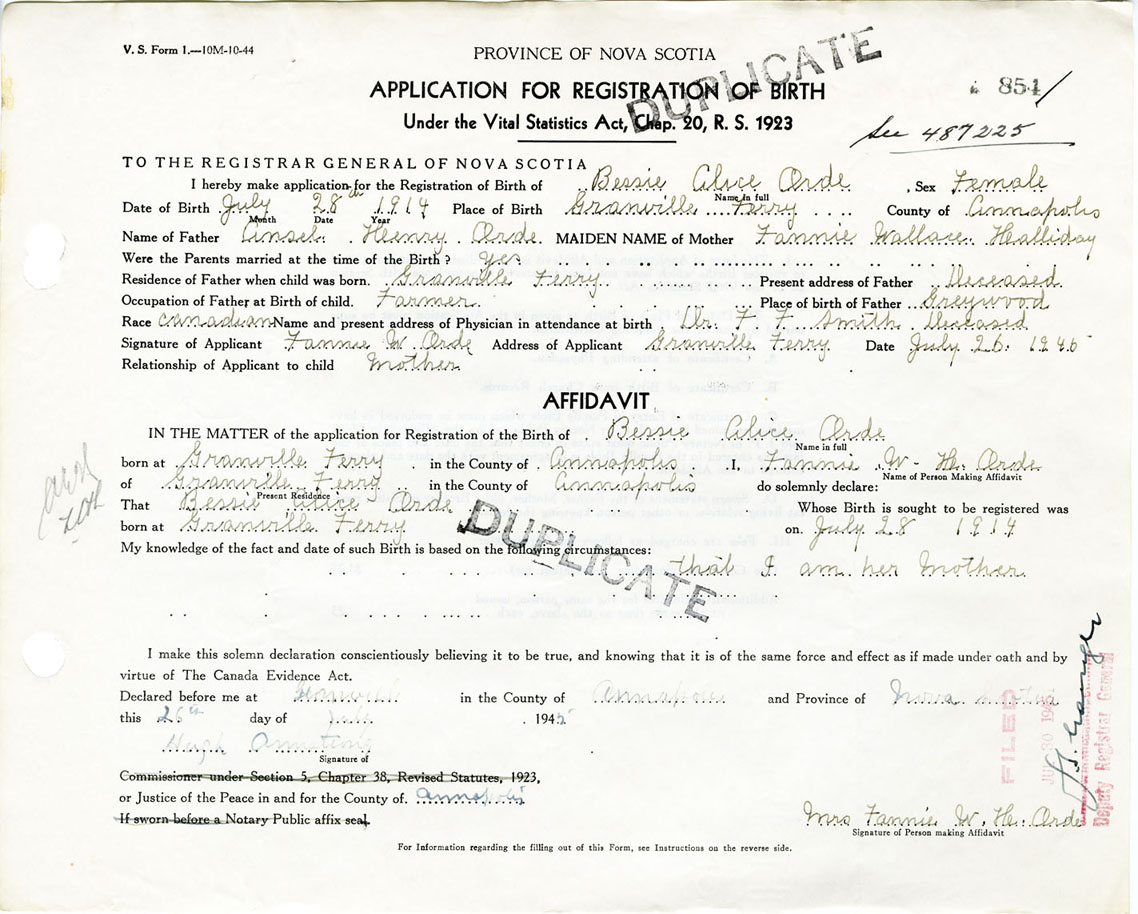 V. S. Form 1.—10M-10-44
PROVINCE OF NOVA SCOTIA
DUPLICATE
APPLICATION FOR REGISTRATION OF BIRTH
851
Under the Vital Statistics Act, Chap. 20, R. S. 1923
See 487225
TO THE REGISTRAR GENERAL OF NOVA SCOTIA
I hereby make application for the Registration of Birth of Bessie Alice Orde , Sex Female
Name in full
Date of Birth July 28th 1914 Place of Birth Granville Ferry County of Annapolis
Month Date Year
Name of Father Ansel Henry Orde. MAIDEN NAME of Mother Fannie Wallace Halliday
Were the Parents married at the time of the Birth? Yes
Residence of Father when child was born. Granville Ferry Present address of Father Deceased
Occupation of Father at Birth of child. Farmer Place of birth of Father Greywood
Race Canadian Name and present address of Physician in attendance at birth Dr. F. F. Smith Deceased
Signature of Applicant Fannie W. Orde Address of Applicant Granville Ferry Date July 26. 1945
Relationship of Applicant to child Mother
AFFIDAVIT
IN THE MATTER of the application for Registration of the Birth of Bessie Alice Orde
Name in full
born at Granville Ferry in the County of Annapolis I, Fannie W. H. Orde
Name of Person Making Affidavit
of Granville Ferry in the County of Annapolis do solemnly declare:
Present Residence
That Bessie Alice Orde Whose Birth is sought to be registered was
born at Granville Ferry on July 28 1914
DUPLICATE
My knowledge of the fact and date of such Birth is based on the following circumstances:
that I am her Mother
I make this solemn declaration conscientiously believing it to be true, and knowing that it is of the same force and effect as if made under oath and by
virtue of The Canada Evidence Act.
Declared before me at in the County of Annapolis and Province of Nova Scotia
this 26th day of July 1945
Hugh Armstrong
Signature of
Commissioner under Section 5, Chapter 38, Revised Statutes, 1923,
or Justice of the Peace in and for the County of. Annapolis
If sworn before a Notary Public affix seal.
Mrs Fannie W. H. Orde
Signature of Person making Affidavit
For Information regarding the filling out of this Form, see Instructions on the reverse side.
FILED
30 1945
Deputy Registrar General